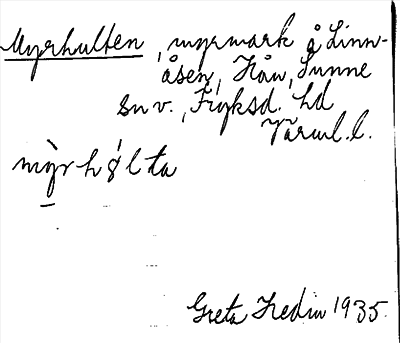 Myrhulten, myrmark å Linn-
åsen, Hån, Sunne
sn v., Fryksd. hd
Värml. l.
my̆r hɵ́lta
Greta Hedin 1935.